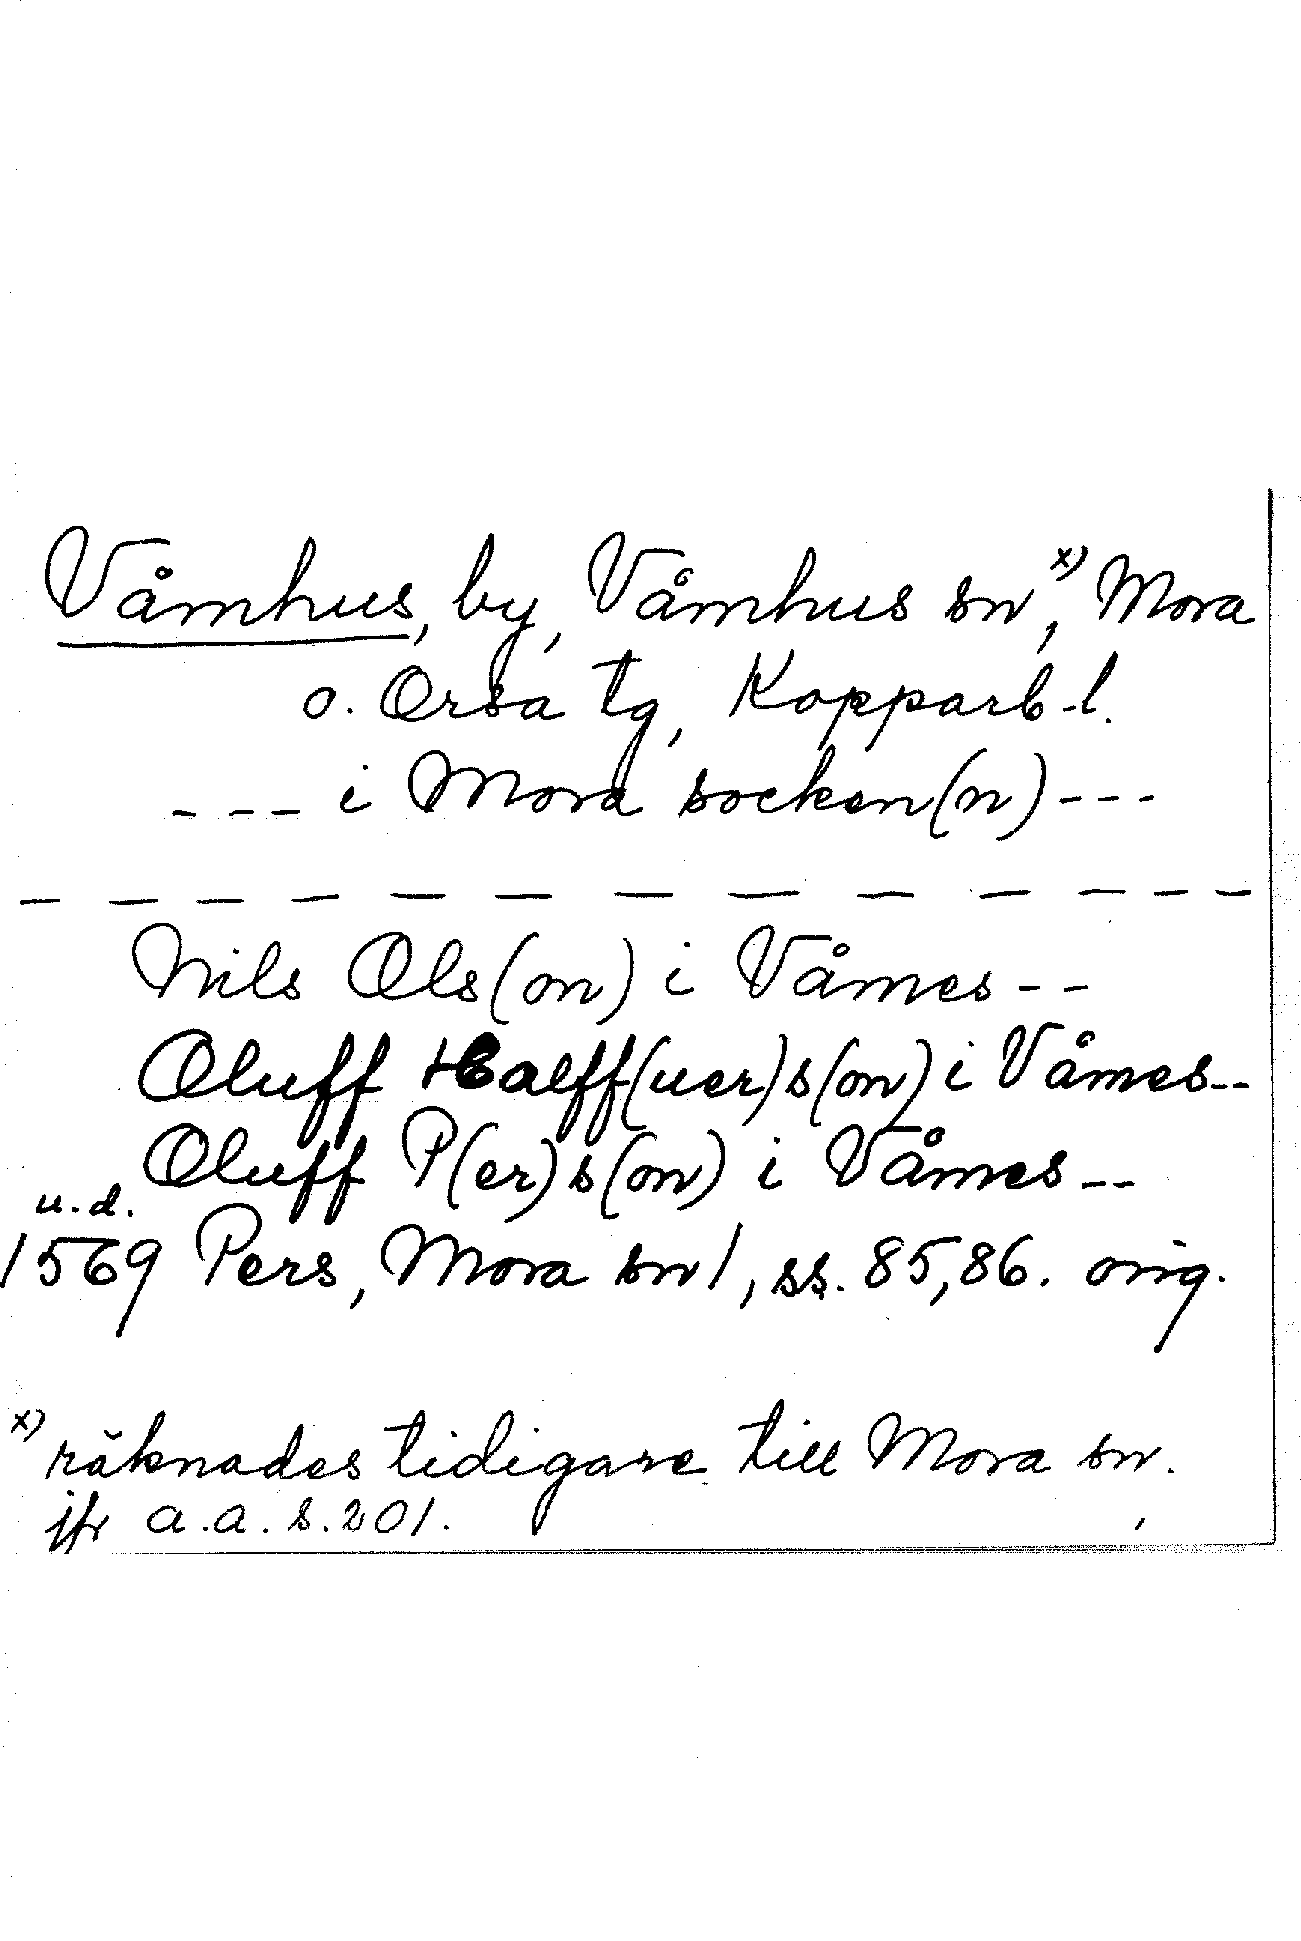 Våmhus, by, Våmhus sn x), Mora
o. Orsa tg, Kopparb. l.
--- i Mora socken(n) ---
Nils Ols(on) i Våmes --
Oluff Halff(uer)s(on) i Våmes --
Oluff P(er)s(on) i Våmes --
u.d.
1569 Pers, Mora sn 1, ss. 85, 86. orig.
x) räknades tidigare till Mora sn.
jfr a.a. s. 201.